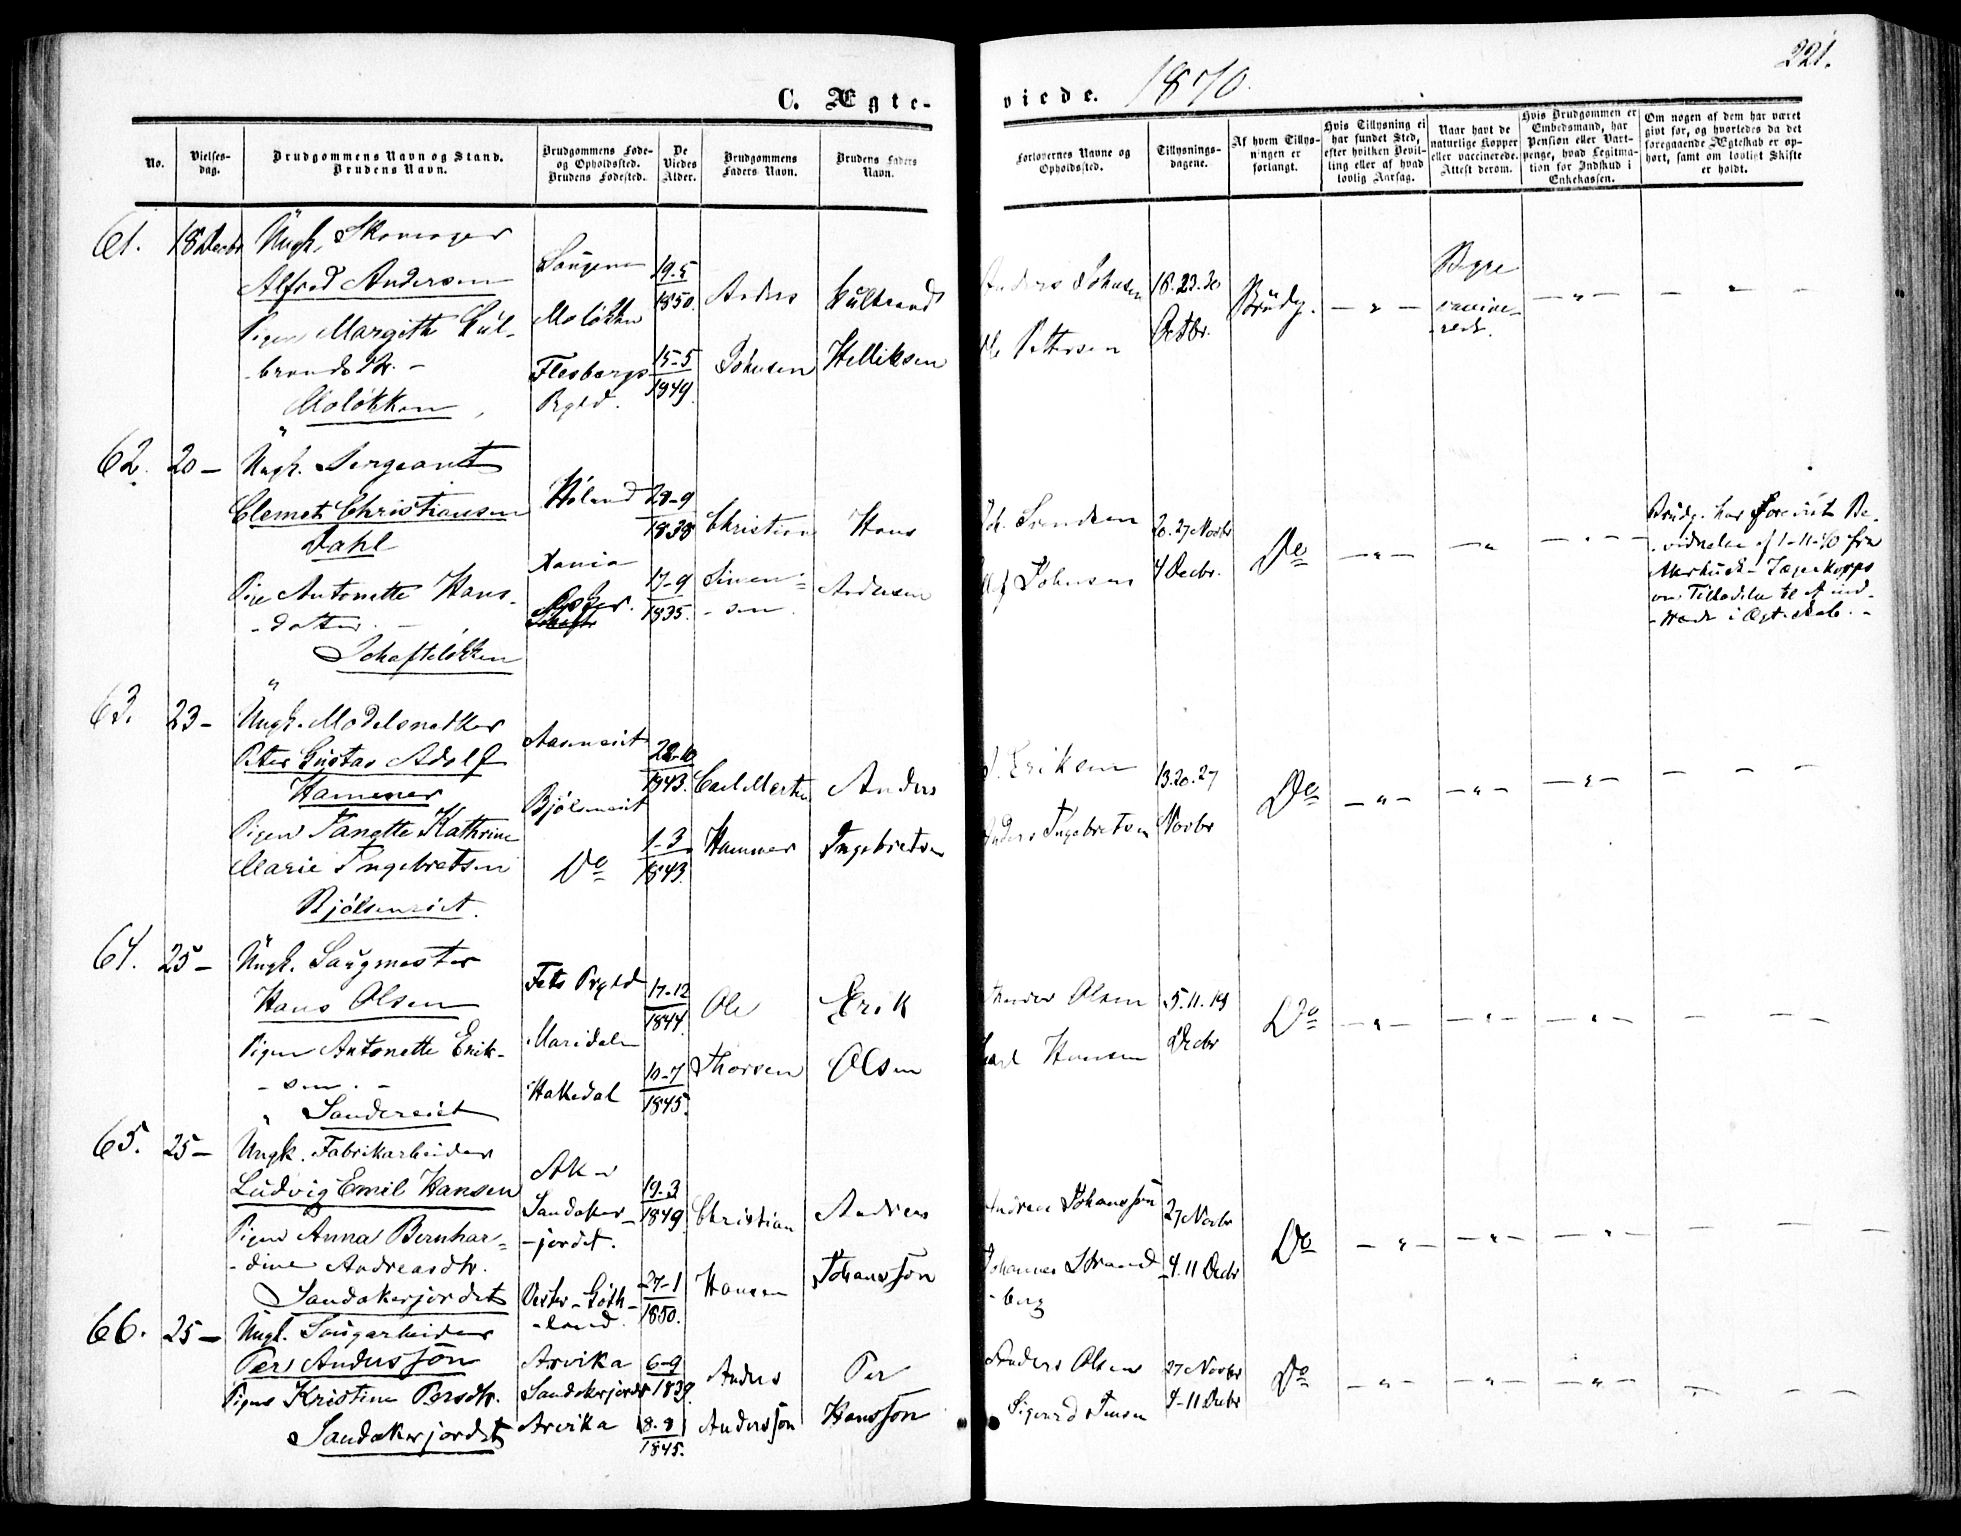 221.
C. Ægte-
viede. 1870.
No.
Vielses-
dag.
Brudgommens Navn og Stand.
Brudens Navn.
Brudgommens Føde-
og Opholdssted.
Brudens Fødested.
De
Viedes
Alder.
Brudgommens
Faders Navn.
Brudens Faders
Navn.
Forlovernes Navne og
Opholdssted.
Tillysnings-
dagene.
Af hvem Tillys-
ningen er
forlangt.
Hvis Tillysning ei
har fundet Sted,
efter hvilken Bevil-
ling eller af hvad
lovlig Aarsag.
Naar havt de
naturlige Kopper
eller vaccinerede.
Attest derom.
Hvis Brudgommen er
Embedsmand, har
Pension eller Vart-
penge, hvad Legitima-
tion for Indskud i
Enkekassen.
Om nogen af dem har været
givt før, og hvorledes da det
foregaaende Ægteskab er op-
hørt, samt om lovligt Skifte
er holdt.
61. 18 Decbr Ungk. Skomager
Alfred Andersen
Pigen Margith Gul-
-brandsdtr. -
Moløkken
Moløkken
Flesbergs
Prgld.
19-5
1850.
15-5
1849.
Anders
Johnsen
Gulbrand
Helliksen
Anders Johnsen
Ole Pettersen
18. 23. 30
Octbr.
Brudg. - " -
Begge
vaccine-
-rede.
- " -
- " -
62. 20 - Ungk. Sergeant
Clemet Christiansen
Dahl
Pige Antonette Hans-
-datter. -
Schafteløkken
Høland
Xania
Asker.
29-9
1838
17-9
1835.
Christian
Simen-
-sen.
Hans
Andersen
Svendsen
Johnsen
20. 27 Novbr
4 Decbr.
Do
- " -
- " -
- " -
Brudg. har forevist Be-
-vidnelse af 1-11-70 fra
Akershusk- Jægerkorps
om Tilladelse til at ind-
-træde i Ægteskab. -
63. 23 - Ungk. Modelsnedker
Peter Gustav Adolf
Hammer
Pigen Janette Kathrine
Marie Ingebretsen
Bjølseneiet.
Aasneeiet
Bjølseneiet
Do
28-10
1843.
1-3
1843.
Carl Martin
Hammer
Anders
Ingebretsen
Eriksen
Anders Ingebretsen
13. 20. 27
Novbr
Do
- " -
- " -
- " -
- - -
64. 25 - Ungk. Saugmester
Hans Olsen
Pigen Antonette Erik-
-sen. -
Sandereiet
Fets Prgld
Maridalen
Hakedal
17-12
1844.
10-7
1845.
Ole
Thorsen
Erik
Olsen
Olsen
Carl Hansen
5. 11. 18
Decbr
Do
- " -
- " -
- " -
- - -
65. 25 - Ungk. Fabrikarbeider
Ludvig Emil Hansen
Pigen Anna Bernhar-
-dine Andreasdtr.
Sandakerjordet
Aker
Sandaker-
-jordet.
Vester-Göth-
-land.
19-3
1849.
27-1
1850.
Christian
Hansen
Andreas
Johansson
Andreas Johansson
Johannes Strand-
-berg
27 Novbr
4. 11 Decbr
Do
- " -
- " -
- " -
- - -
66. 25 - Ungk. Saugarbeider
Per Andersson
Pigen Kristine Persdtr.
Sandakerjordet
Arvika
Sandakerjordet
Arvika
6-9
1839.
8-8
1845.
Anders
Andersson
Per
Hansson
Anders Olsen
Sigvard Jensen
27 Novbr
4-11 Decbr
Do
- " -
- " -
- " -
- - -